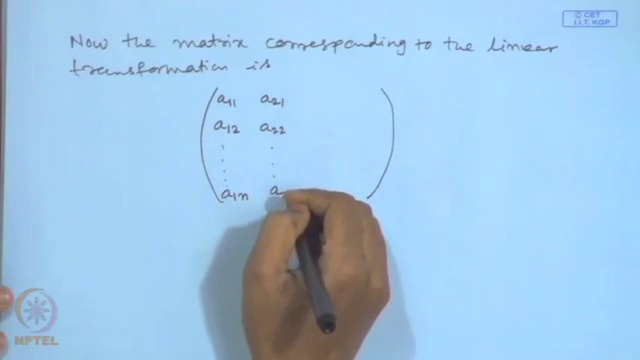 © CET
I.I.T. KGP
Now the matrix corresponding to the linear
transformation is
a11 a21
a12 a22
a1n a
NPTEL